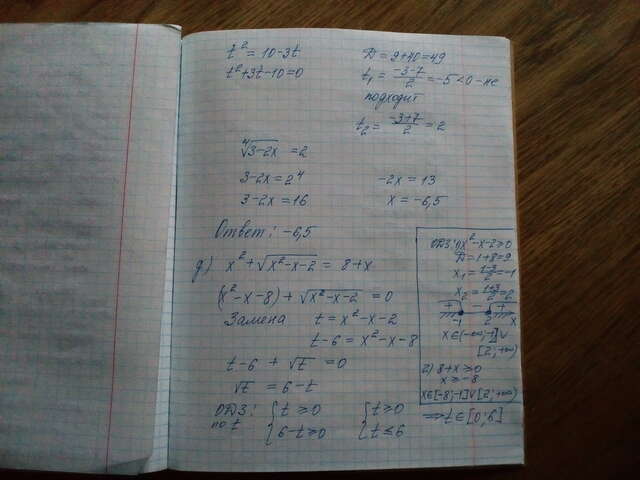 t² = 10-3t
t²+3t-10=0
Д = 9+40=49
t₁ = (-3-7)/2 = -5 <0 - не
подходит
t₂ = (-3+7)/2 = 2
⁴√(3-2x) = 2
3-2x = 2⁴
3-2x = 16
-2x = 13
x = -6,5
Ответ: -6,5
д) x² + √(x²-x-2) = 8+x
(x²-x-8) + √(x²-x-2) = 0
Замена t = x²-x-2
t-6 = x²-x-8
t-6 + √t = 0
√t = 6-t
ОДЗ: {t ≥ 0 {t ≥ 0
по t {6-t ≥ 0 {t ≤ 6
=> t ∈ [0; 6]
ОДЗ: 1) x²-x-2 ≥ 0
Д = 1+8 = 9
x₁ = (1-3)/2 = -1
x₂ = (1+3)/2 = 2
+ - +
-1 2 x
x ∈ (-∞; -1] ∪
[2; +∞)
2) 8+x ≥ 0
x ≥ -8
x ∈ [-8; -1] ∪ [2; +∞)